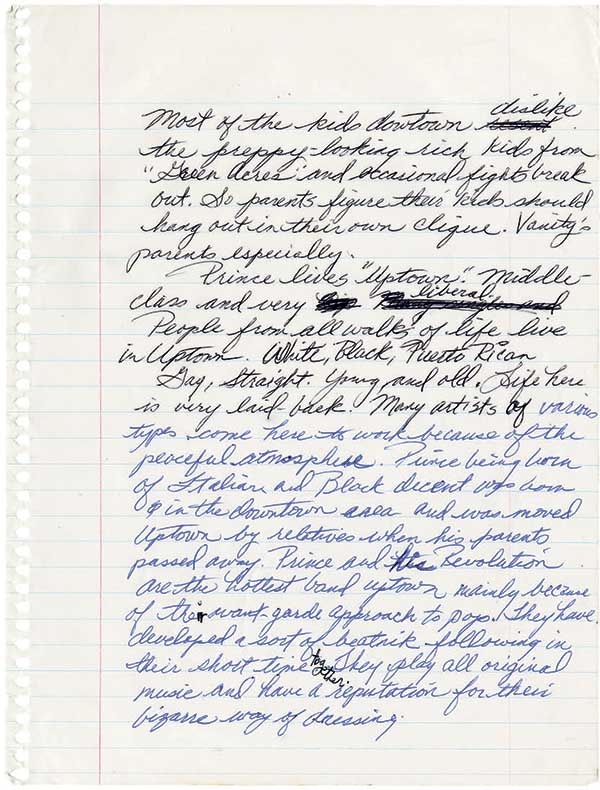 dislike
Most of the kids dowtown resent
the preppy-looking rich kids from
"Green Acres" and occasional fights break
out. So parents figure their kids should
hang out in their own clique. Vanity's
parents especially.
Prince lives "Uptown". Middle-
class and very liberal.
People from all walks of life live
in Uptown. White, Black, Puerto Rican
Gay, Straight. Young and old. Life here
is very laid back. Many artists of various
types come here to work because of the
peaceful atmosphere. Prince being born
of Italian and Black decent was born
in the downtown area and was moved
Uptown by relatives when his parents
passed away. Prince and his Revolution
are the hottest band uptown mainly because
of their avant-garde approach to pop. They have
developed a sort of beatnik following in
their short time together. They play all original
music and have a reputation for their
bizarre way of dressing.